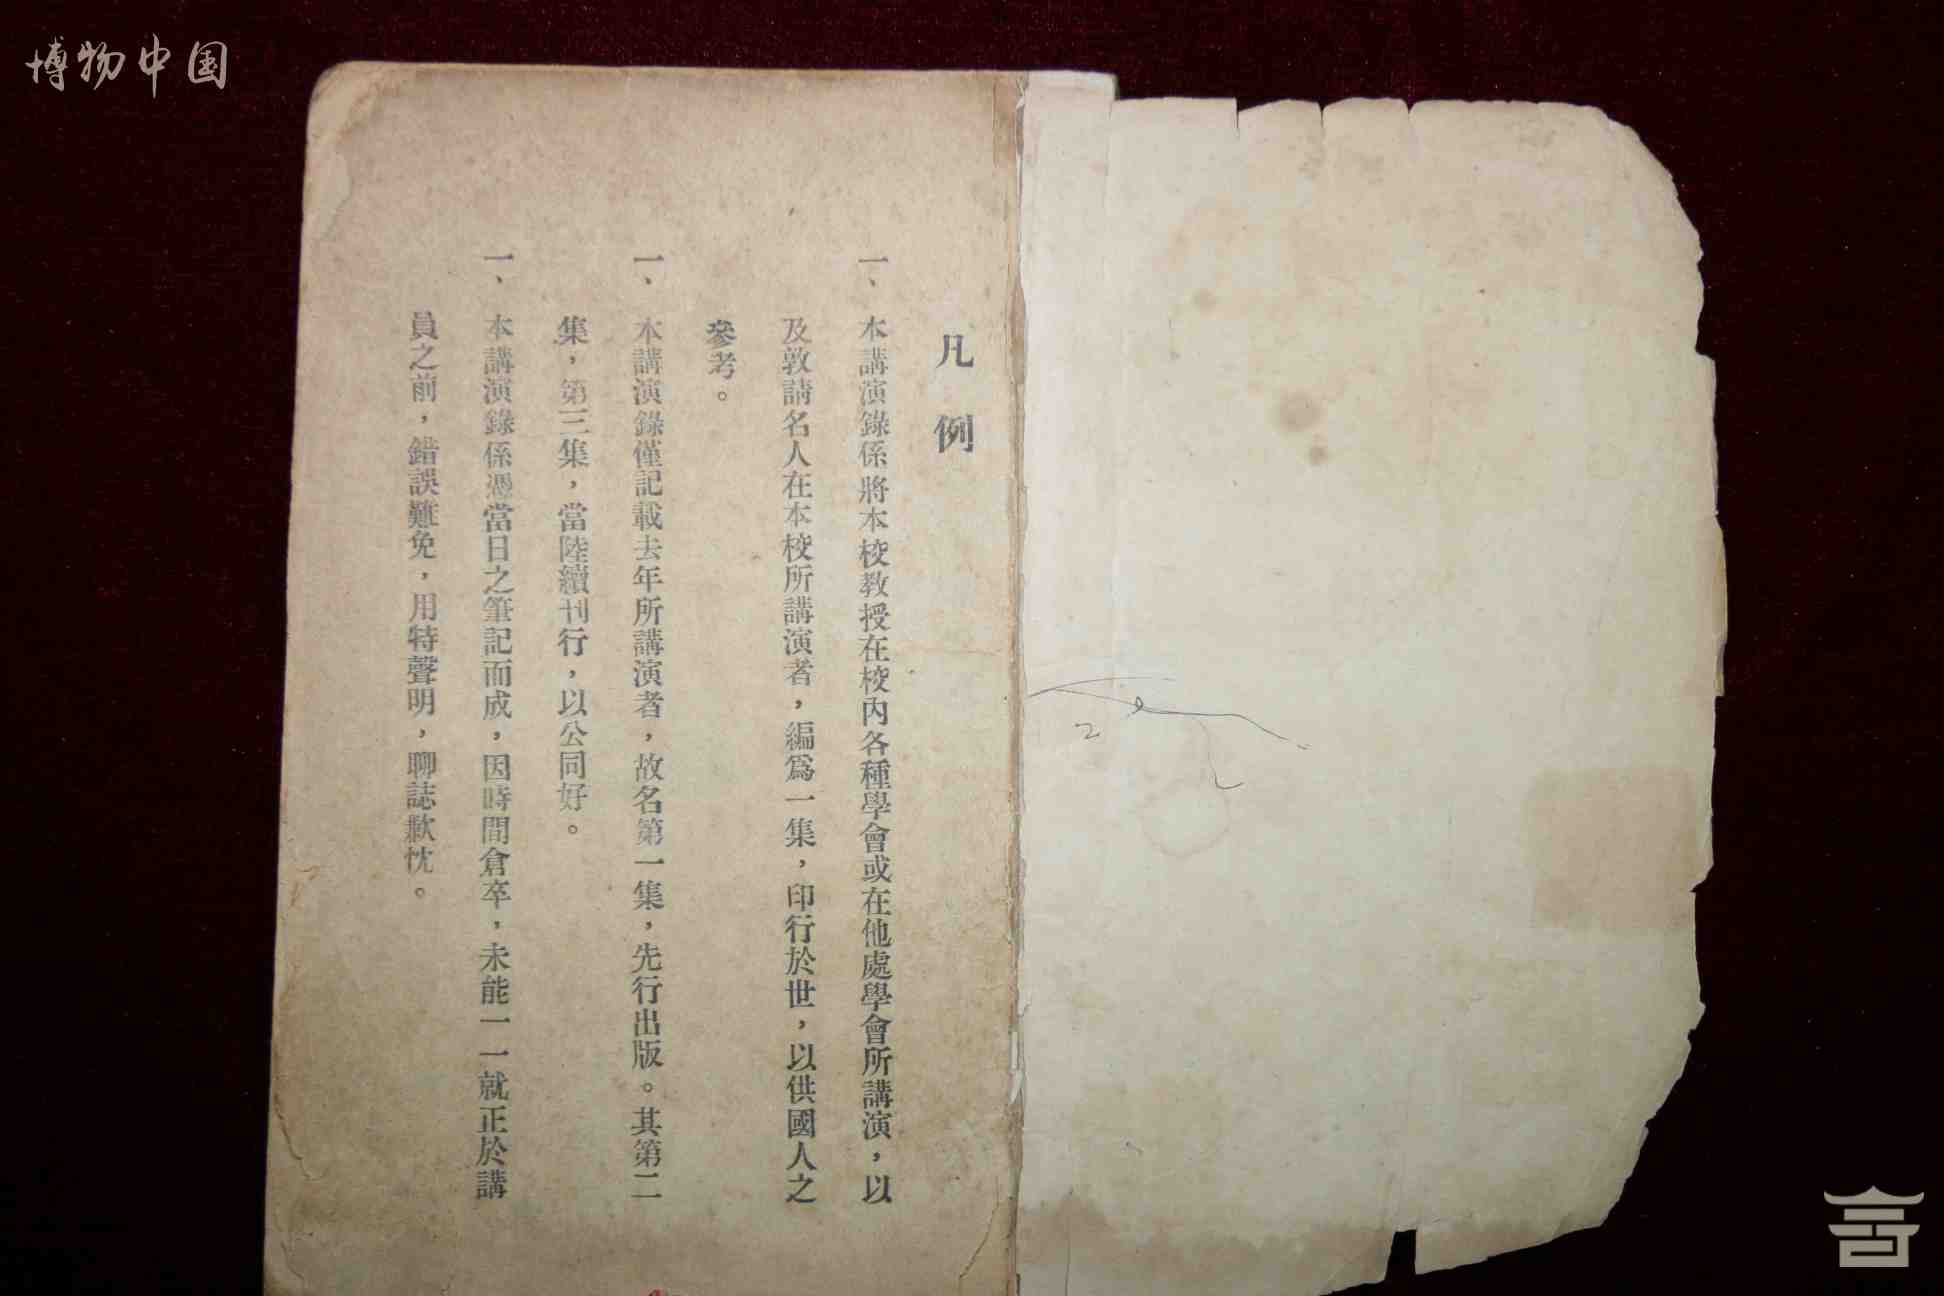 博物中国
凡例
一、本講演錄係將本校教授在校內各種學會或在他處學會所講演，以
及敦請名人在本校所講演者，編爲一集，印行於世，以供國人之
參考。
一、本講演錄僅記載去年所講演者，故名第一集，先行出版。其第二
集，第三集，當陸續刊行，以公同好。
一、本講演錄係憑當日之筆記而成，因時間倉卒，未能一一就正於講
員之前，錯誤難免，用特聲明，聊誌歉忱。